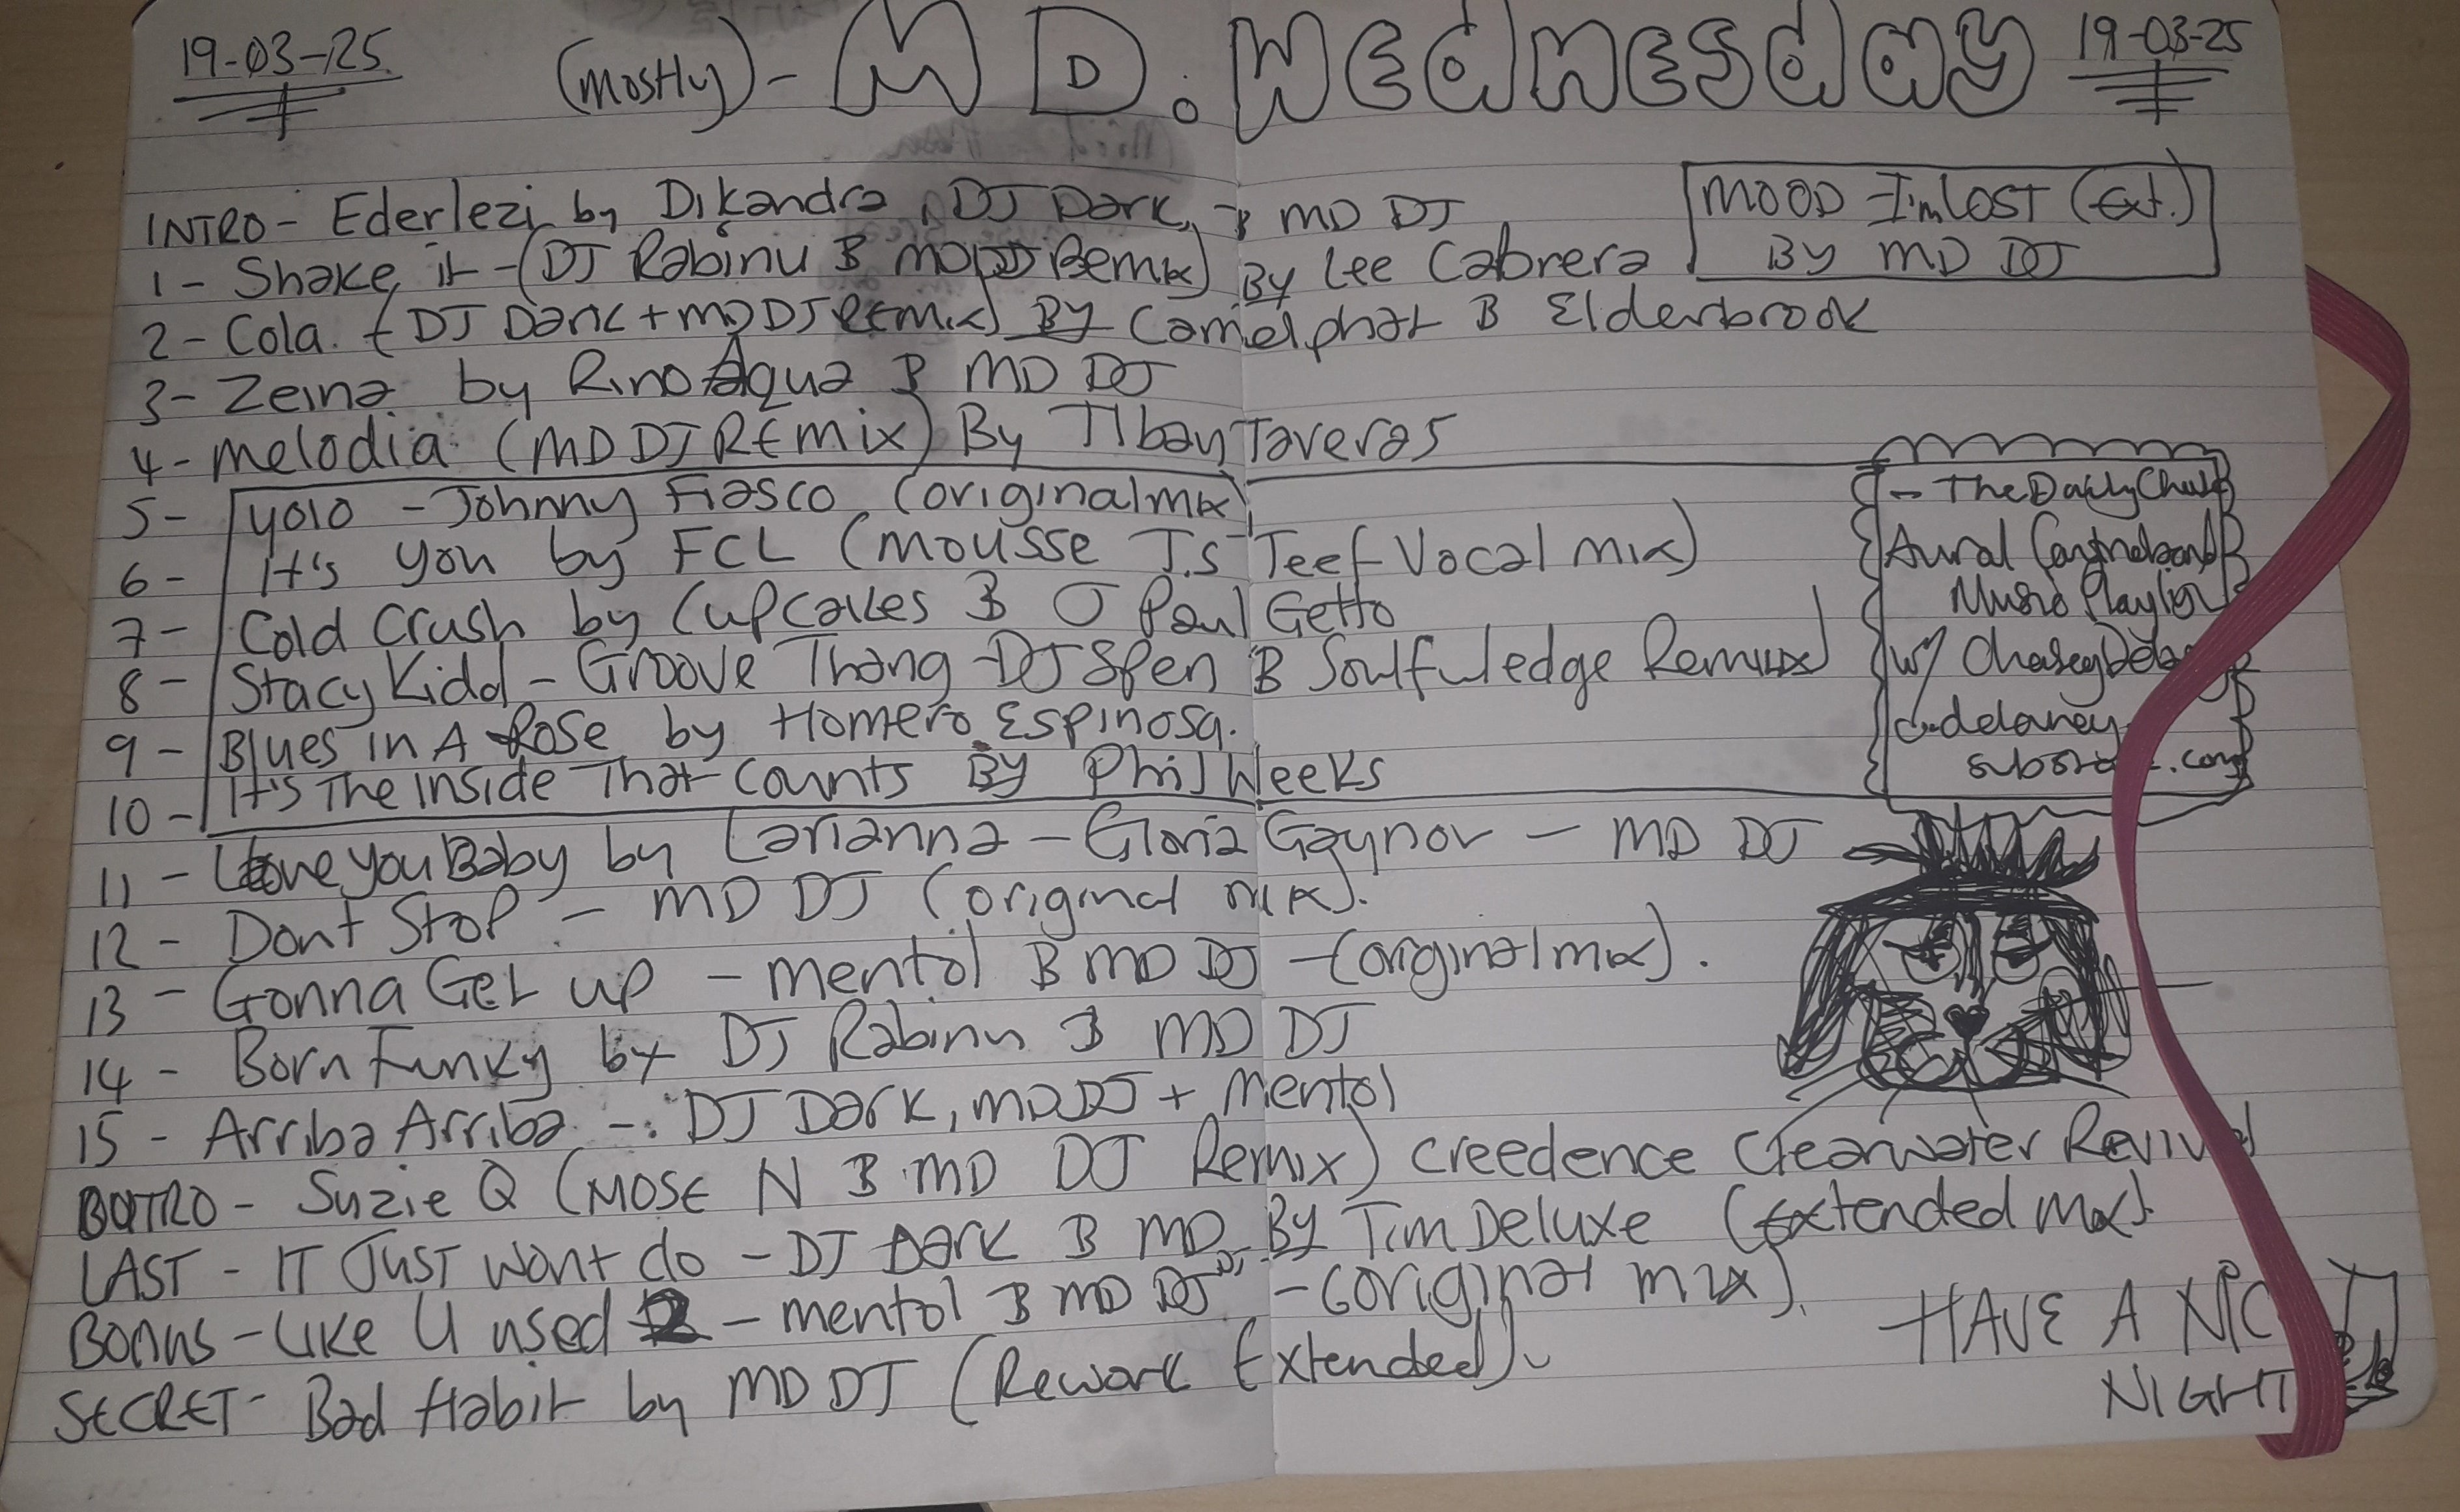 19-03-25 (mostly) - MD. Wednesday 19-03-25
MOOD - I'm LOST (Ext.)
By MD DJ
INTRO - Ederlezi by Dikandra, DJ Dark, B MD DJ
1 - Shake it - (DJ Rabinu B MD DJ Remix) By Lee Cabrera
2 - Cola. - (DJ Dark + MD DJ Remix) By Camelphat B Elderbrook
3 - Zeina by Rino Aqua B MD DJ
4 - Melodia (MD DJ REmix) By Tlbay Taveras
5 - Yolo - Johnny Fiasco (original mix)
6 - It's You by FCL (Mousse T.s Teef Vocal mix)
7 - Cold Crush by Cupcakes B O Paul Getto
8 - Stacy Kidd - Groove Thang - DJ Spen B Soulfuledge Remix)
9 - Blues in A Rose by Homero Espinosa.
10 - It's The Inside That Counts By Phil Weeks
- The Daily Chase
Aural Contraband
Music Playlist
w/ Chasey Delaney
c.delaney
substack.com
11 - Love You Baby by Larianna - Gloria Gaynor - MD DJ
12 - Dont Stop - MD DJ (original mix).
13 - Gonna Get up - mentol B MD DJ - (original mix).
14 - Born Funky by DJ Rabinu B MD DJ
15 - Arriba Arriba -: DJ Dark, MD DJ + Mentol
OUTRO - Suzie Q (MOSE N B MD DJ Remix) Creedence Clearwater Revival
LAST - IT JUST Wont do - DJ Dark B MD DJ - By Tim Deluxe (Extended Mix).
Bonus - Like U used 2 - mentol B MD DJ - (original mix).
SECRET - Bad Habit by MD DJ (Rework Extended).
HAVE A
NIGHT